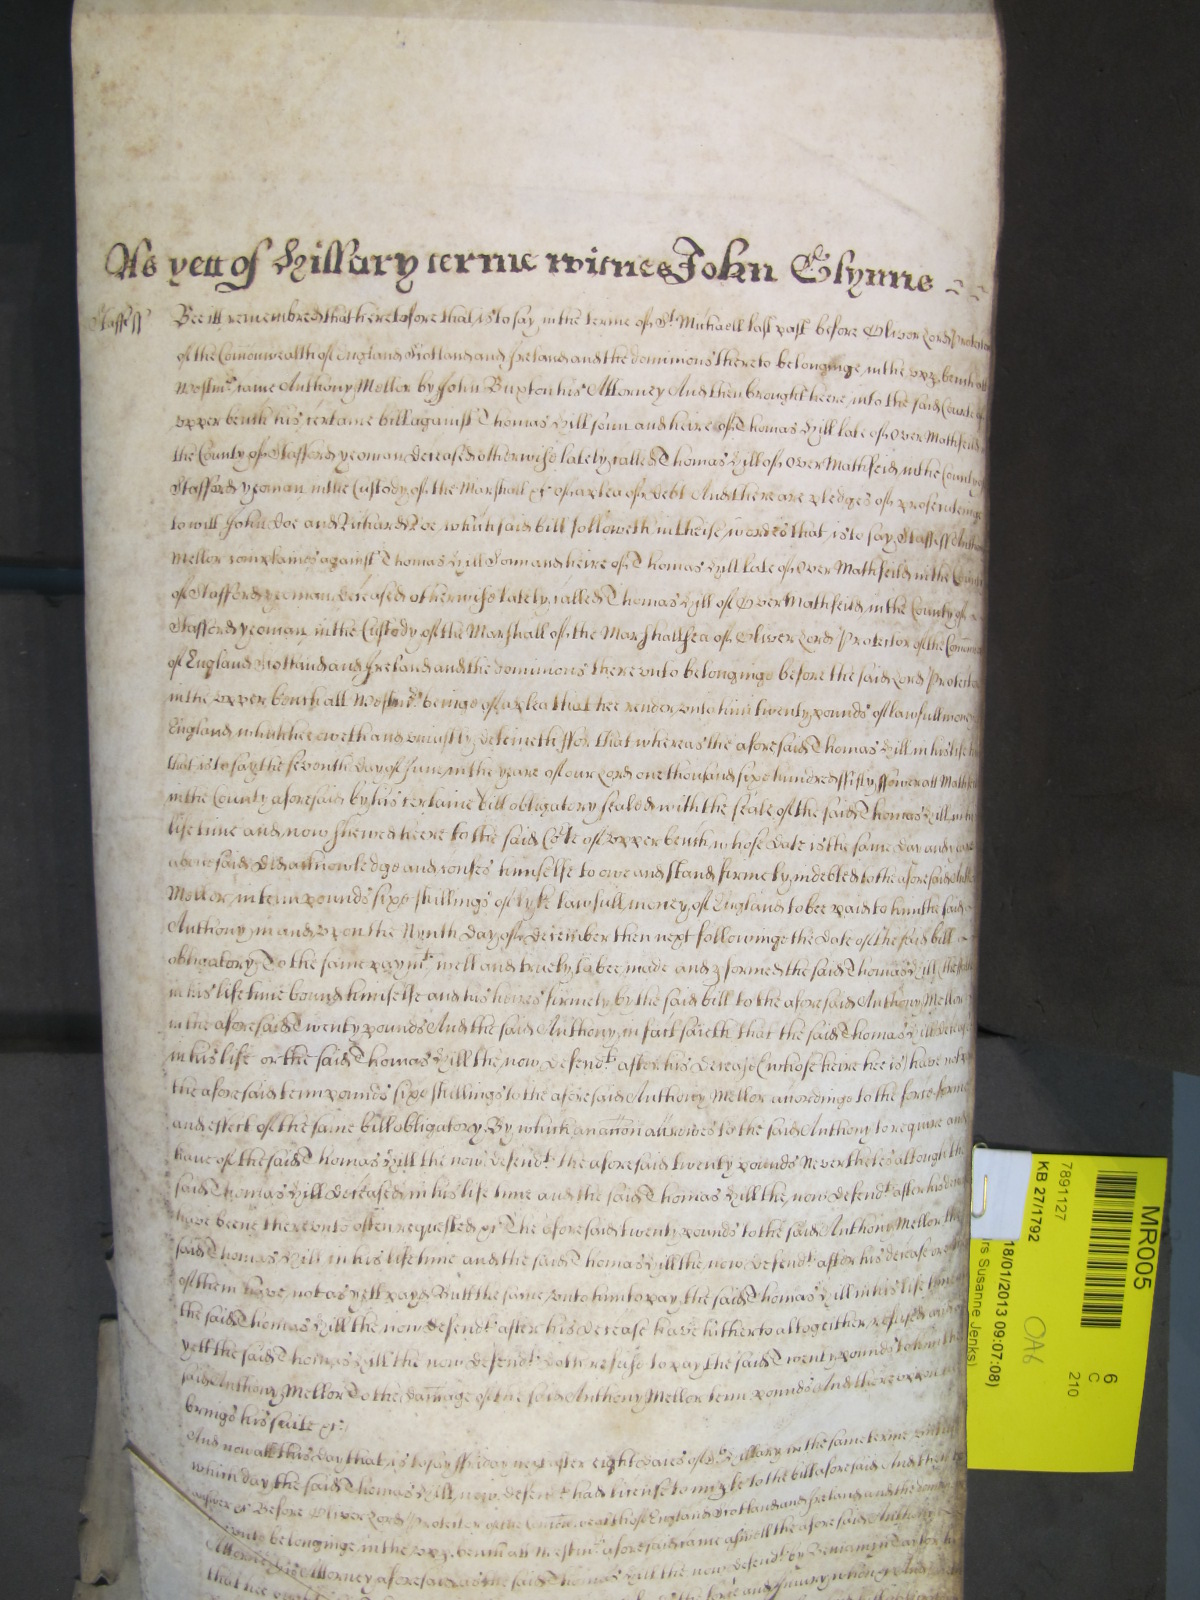 As yett of Hillary terme witnes John Glynne
Staff ss Bee itt remembred that heretofore that is to say in the terme of St Michaell last past before Oliver Lord Protector
of the Comonwealth of England Scotland and Ireland and the dominions thereto belonginge in the upp bench att
Westmr came Anthony Mellor by John Buxton his Attorney And then brought heere into the said Courte of
upper bench his certaine bill against Thomas Hill sonn and heire of Thomas Hill late of Over Mathfeild in
the County of Stafford yeoman deceased otherwise lately called Thomas Hill of Over Mathfeild in the County of
Stafford yeoman in the Custody of the Marshall &c of a plea of debt And there are pledges of prosecutinge
to witt John Doe and Richard Roe which said bill followeth in theise wordes that is to say Staff ss Anthony
Mellor complaines against Thomas Hill Sonn and heire of Thomas Hill late of Over Mathfeild in the County
of Stafford yeoman deceased otherwise lately called Thomas Hill of Over Mathfeild in the County of
Stafford yeoman in the Custody of the Marshall of the Marshallsea of Oliver Lord Protector of the Comon
of England Scotland and Ireland and the dominions thereunto belonginge before the said Lord Protector
in the upper bench att Westmr beinge of a plea that hee render unto him twenty pounds of lawfull money
England which hee oweth and uniustly deteineth For that whereas the aforesaid Thomas Hill in his life
that is to say the seventh day of June in the yeare of our Lord one thousand sixe hundred fifty fower att Mathfeild
in the County aforesaid by his certaine bill obligatory sealed with the seale of the said Thomas Hill in his
life time and now shewed heere to the said Corte of upper bench whose date is the same day and yeare
abovesaid did acknowledge and confes himselfe to owe and stand firmely indebted to the aforesaid Anthony
Mellor in tenn pounds sixe shillings of lyke lawfull money of England to bee paid to him the said
Anthony in and upon the Nynth day of December then next followinge the date of the said bill
obligatory To the same paymt well and truely to bee made and pformed the said Thomas Hill the
in his life time bound himselfe and his heires firmely by the said bill to the aforesaid Anthony Mellor
in the aforesaid Twenty pounds And the said Anthony in fact saieth that the said Thomas Hill deceased
in his life or the said Thomas Hill the now defendt after his decease (whose heire hee is) have not
the aforesaid tenn pounds sixe shillings to the aforesaid Anthony Mellor accordinge to the force forme
and effect of the same bill obligatory By which an accon accrewes to the said Anthony to require and
have of the said Thomas Hill the now defendt the aforesaid twenty pounds Neverthelес although the
said Thomas Hill deceased in his life time and the said Thomas Hill the now defendt after his decease
have beene thereunto often requested &c The aforesaid twenty pounds to the said Anthony Mellor the
said Thomas Hill in his life time and the said Thomas Hill the now defendt after his decease or
of them have not as yett payd Butt the same unto him to pay the said Thomas Hill in his life time
the said Thomas Hill the now defendt after his decease have hitherto altogeither refused and
yett the said Thomas Hill the now defendt doth refuse to pay the said twenty pounds to him the
said Anthony Mellor To the damage of the said Anthony Mellor tenn pounds And thereuppon
brings his suite &c
And now att this day that is to say Friday next after eight daies of St Hillary in the same terme untill
which day the said Thomas Hill now defendt had licence to imple to the bill aforesaid And then to
answer &c Before Oliver Lord Protector of the Comonwealth of England Scotland and Ireland and the dominions
unto belonginge in the upp bench att Westmr aforesaid came aswell the aforesaid Anthony
Attorney his Attorney aforesaid as the said Thomas Hill the now defendt by Beniamin Taylor his
that hee
the force and iniury when &c And
MR005
6
C
210
7891127
KB 27/1792
18/01/2013 09:07:08)
rs Susanne Jenks)
OA6